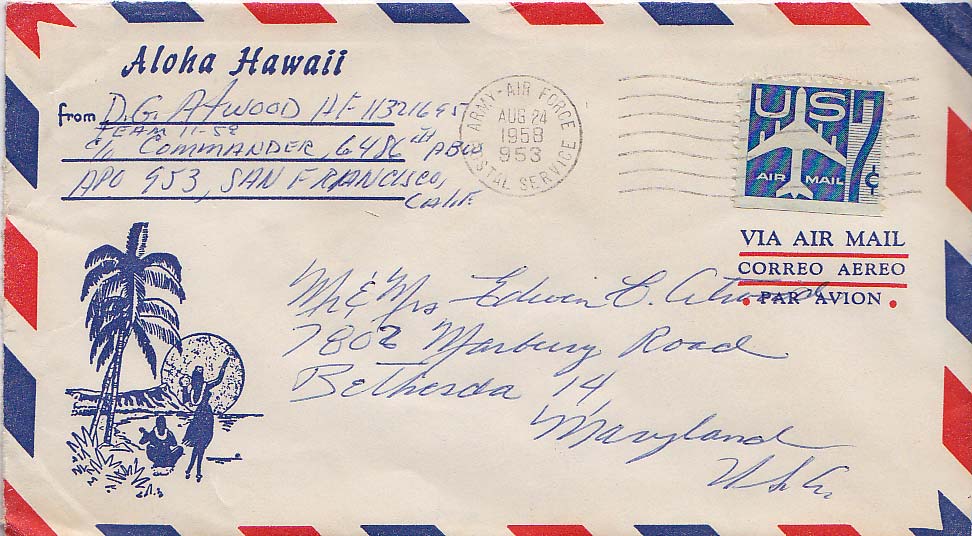 Aloha Hawaii
from D.G. Atwood AF 11321695
TEAM 11-58
c/o COMMANDER, 6486TH ABW
APO 953, SAN FRANCISCO,
CALIF
ARMY-AIR FORCE
AUG 24
1958
953
POSTAL SERVICE
US 7¢
AIR MAIL
VIA AIR MAIL
CORREO AEREO
• PAR AVION •
Mr & Mrs Edwin C. Atwood
7802 Marbury Road
Bethesda 14,
Maryland
U.S.A.